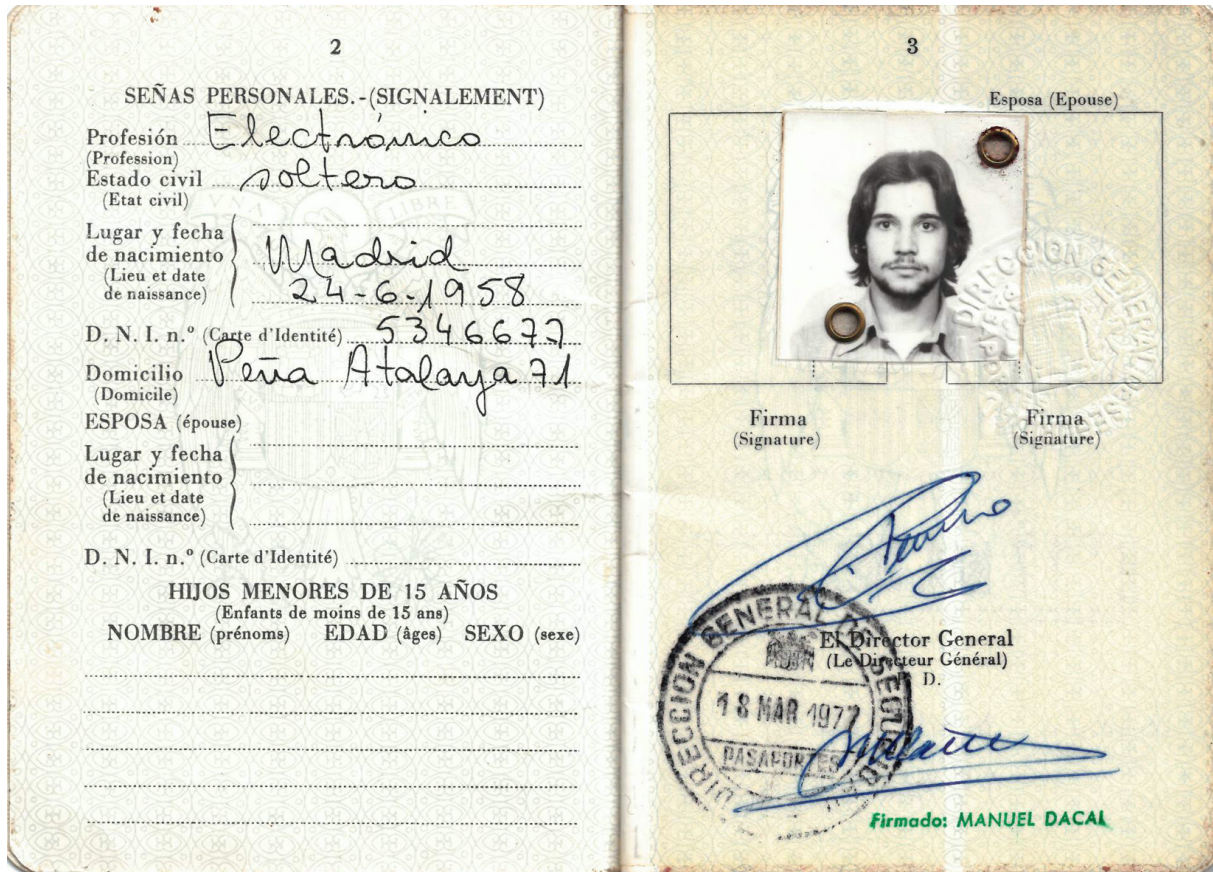 2
SEÑAS PERSONALES.-(SIGNALEMENT)
Profesión Electrónico
(Profession)
Estado civil soltero
(Etat civil)
Lugar y fecha
de nacimiento Madrid
(Lieu et date
de naissance) 24-6-1958
D. N. I. n.º (Carte d'Identité) 5346677
Domicilio Peña Atalaya 71
(Domicile)
ESPOSA (épouse)
Lugar y fecha
de nacimiento
(Lieu et date
de naissance)
D. N. I. n.º (Carte d'Identité)
HIJOS MENORES DE 15 AÑOS
(Enfants de moins de 15 ans)
NOMBRE (prénoms) EDAD (âges) SEXO (sexe)
3
Esposa (Epouse)
DIRECCION GENERAL
Firma Firma
(Signature) (Signature)
El Director General
(Le Directeur Général)
P. D.
DIRECCION GENERAL DE SEGURIDAD
18 MAR 1977
PASAPORTES
Firmado: MANUEL DACAL